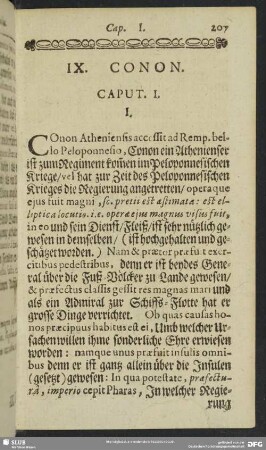 Cap. I. 207
IX. CONON.
CAPUT. I.
I.
COnon Atheniensis accessit ad Remp. bel-
lo Peloponnesio, Conon ein Athenienser
ist zum Regiment kom̃en im Peloponnesischen
Kriege/ vel hat zur Zeit des Peloponnesischen
Krieges die Regierung angetretten/ opera que
ejus fuit magni, sc. pretii est æstimata: est el-
liptica locutio. i. e. opera ejus magnus visus fuit,
in eo und sein Dienst/ Fleiß/ ist sehr nützlich ge-
wesen in demselben/ (ist hochgehalten und ge-
schätzet worden.) Nam & prætor præfuit exer-
citibus pedestribus, denn er ist beydes Gene-
ral über die Fuß-Völcker zu Lande gewesen/
& præfectus classis gessit res magnas mari und
als ein Admiral zur Schiffs-Flotte hat er
grosse Dinge verrichtet. Ob quas causas ho-
nos præcipuus habitus est ei, Umb welcher Ur-
sachen willen ihme sonderliche Ehre erwiesen
worden: namque unus præfuit insulis omni-
bus denn er ist gantz allein über die Insulen
(gesetzt) gewesen: In qua potestate, præfectu-
ra, imperio cepit Pharas, In welcher Regie-
rung
SLUB